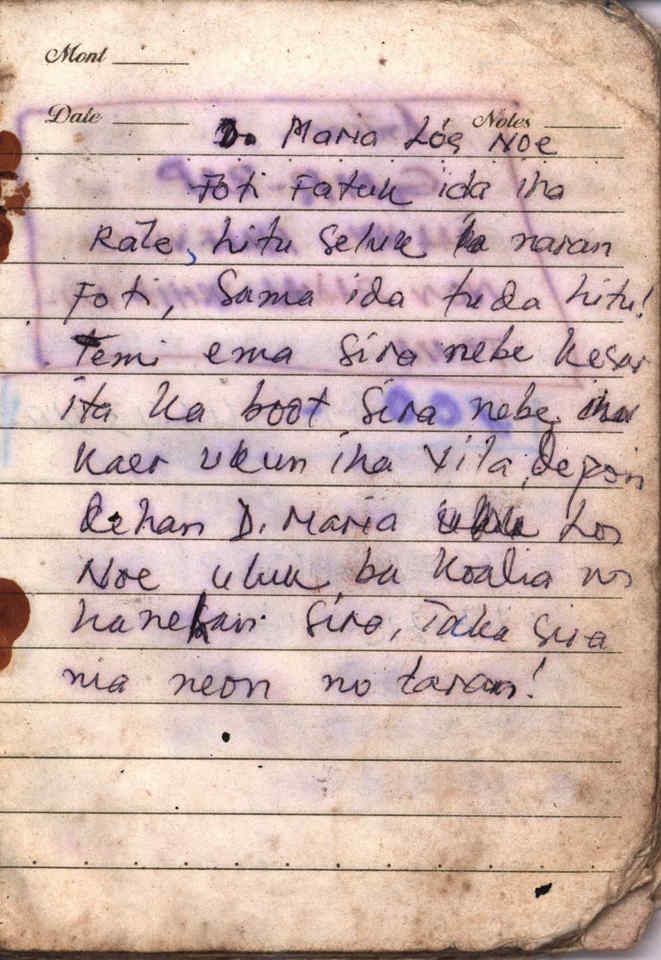 Mont
Date Notes
D. Maria Lós Noe
Foti Fatuk ida iha
Rate, hitu seluk naran
Foti, Sama ida tuda hitu!
Temi ema sira nebe kesar
ita ka boot sira nebe
Kaer ukun iha Vila, depois
dehan D. Maria Los
Noe uluk, ba koalia no
hanehan sira, Taka sira
nia neon no taran!